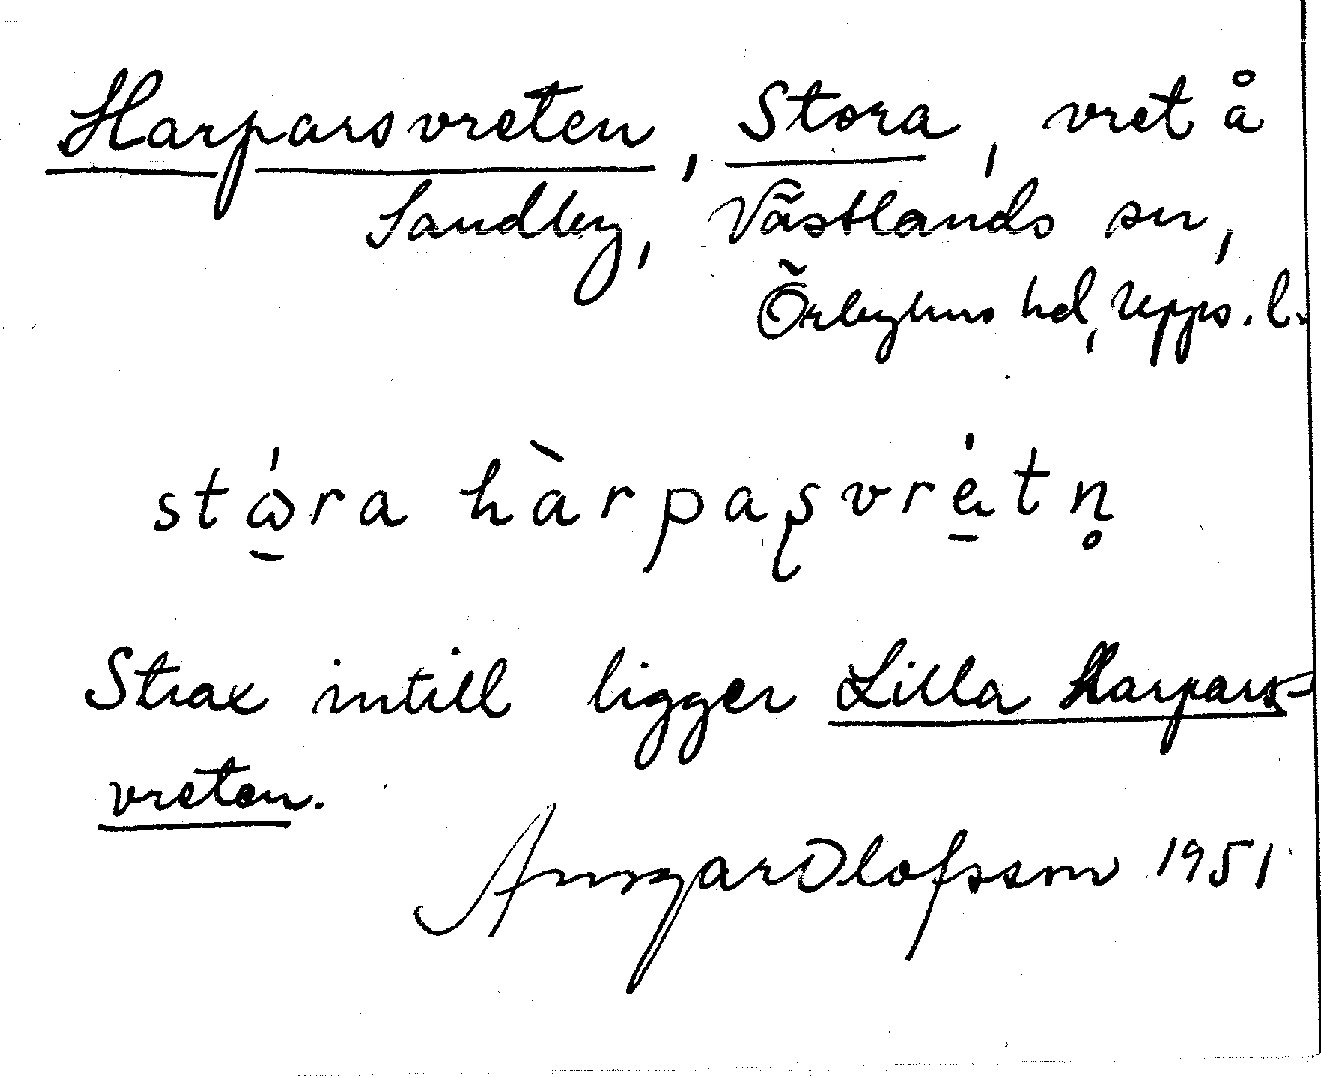 Harparsvreten, Stora, vret å
Sandby, Västlands sn,
Örbyhus hd, Upps. l.
stώ̱ra hàrpaʂvré̱tn̥
Strax intill ligger Lilla Harpars-
vreten.
Ansgar Olofsson 1951